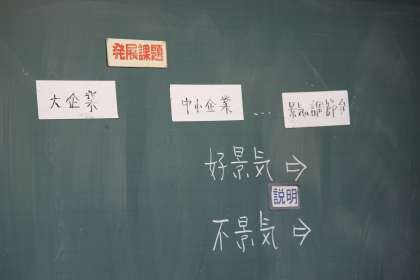 発展課題
大企業 中小企業 … 景気調節弁
好景気 ⇨
説明
不景気 ⇨